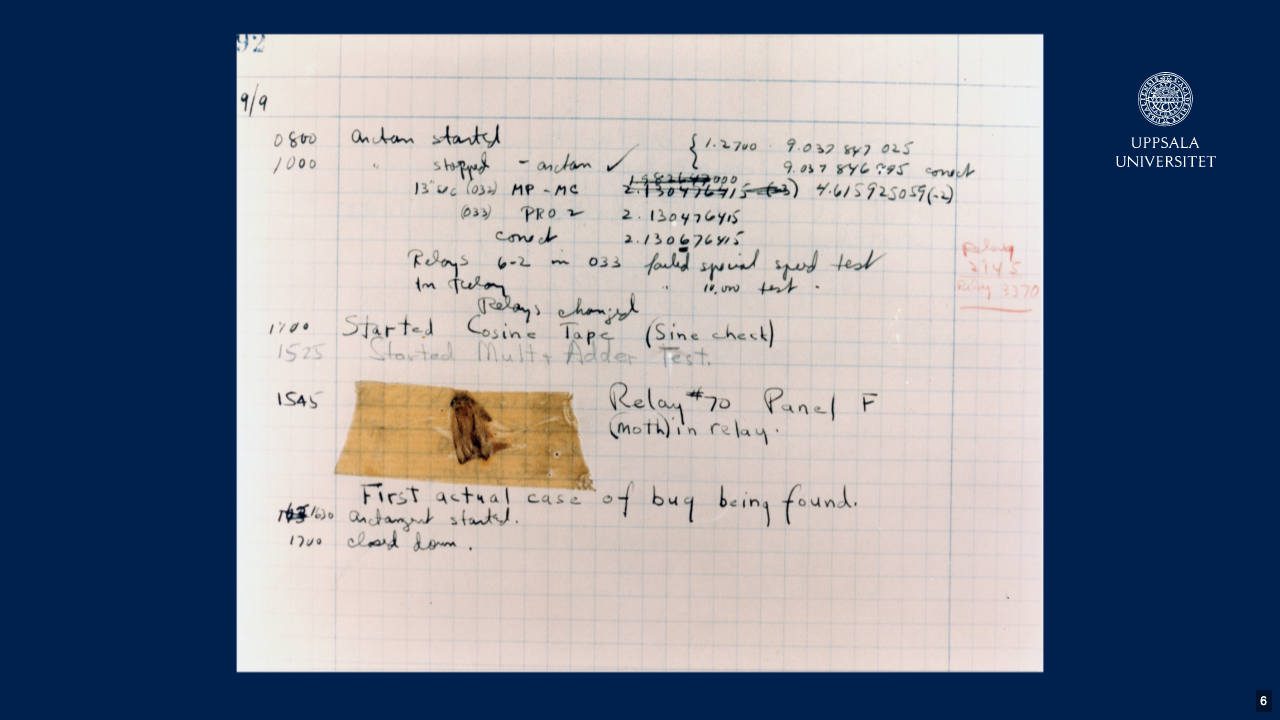 92
9/9
0800 arctan started { 1.2700 9.037 847 025
1000 " stopped - arctan ✓ 9.037 846 795 correct
13" sec (032) MP - MC 1.982647000
2.130476415 (-3) 4.615925059(-2)
(033) PRO 2 2.130476415
correct 2.130676415
Relays 6-2 in 033 failed special speed test
In Relay " 10,000 test .
Relay
2145
Relay 3370
Relays changed
1700 Started Cosine Tape (Sine check)
1525 Started Mult + Adder Test.
1545 Relay #70 Panel F
(moth) in relay.
First actual case of bug being found.
1630 arctangent started.
1700 closed down.
UPPSALA
UNIVERSITET
6